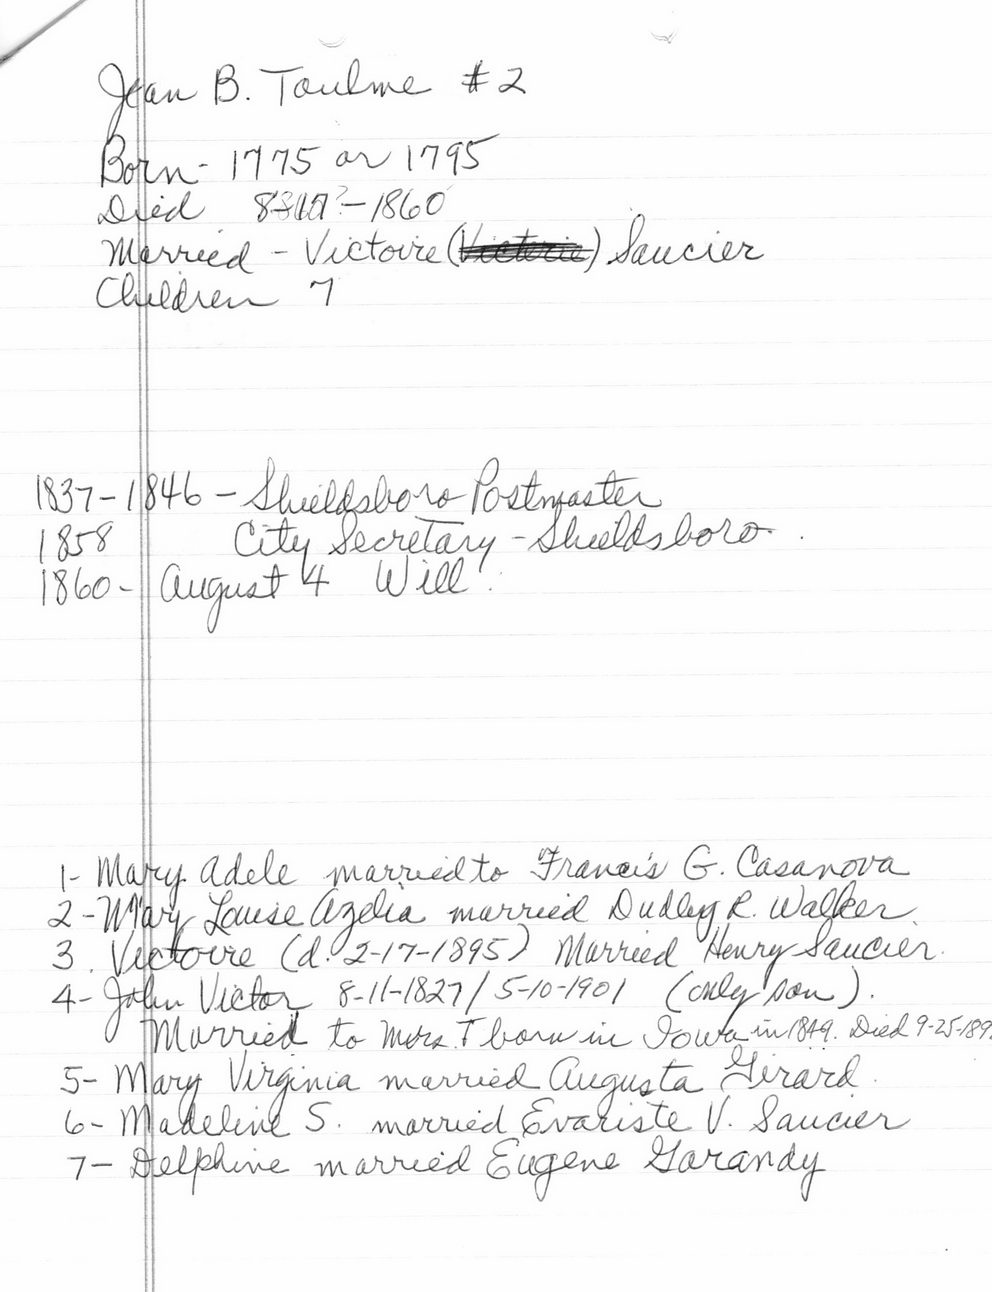 Jean B. Toulme #2
Born - 1775 or 1795
Died 1860
Married - Victoire (Victoria) Saucier
Children 7
1837-1846 - Shieldsboro Postmaster
1858 City Secretary - Shieldsboro.
1860 - August 4 Will.
1- Mary Adele married to Francis G. Casanova
2- Mary Louise Azelia married Dudley R. Walker.
3. Victoire (d. 2-17-1895) Married Henry Saucier.
4- John Victor 8-11-1827/5-10-1901 (only son).
Married to Mrs. T born in Iowa in 1849. Died 9-25-189
5- Mary Virginia married Augusta Girard.
6- Madeline S. married Evariste V. Saucier
7- Delphine married Eugene Garandy